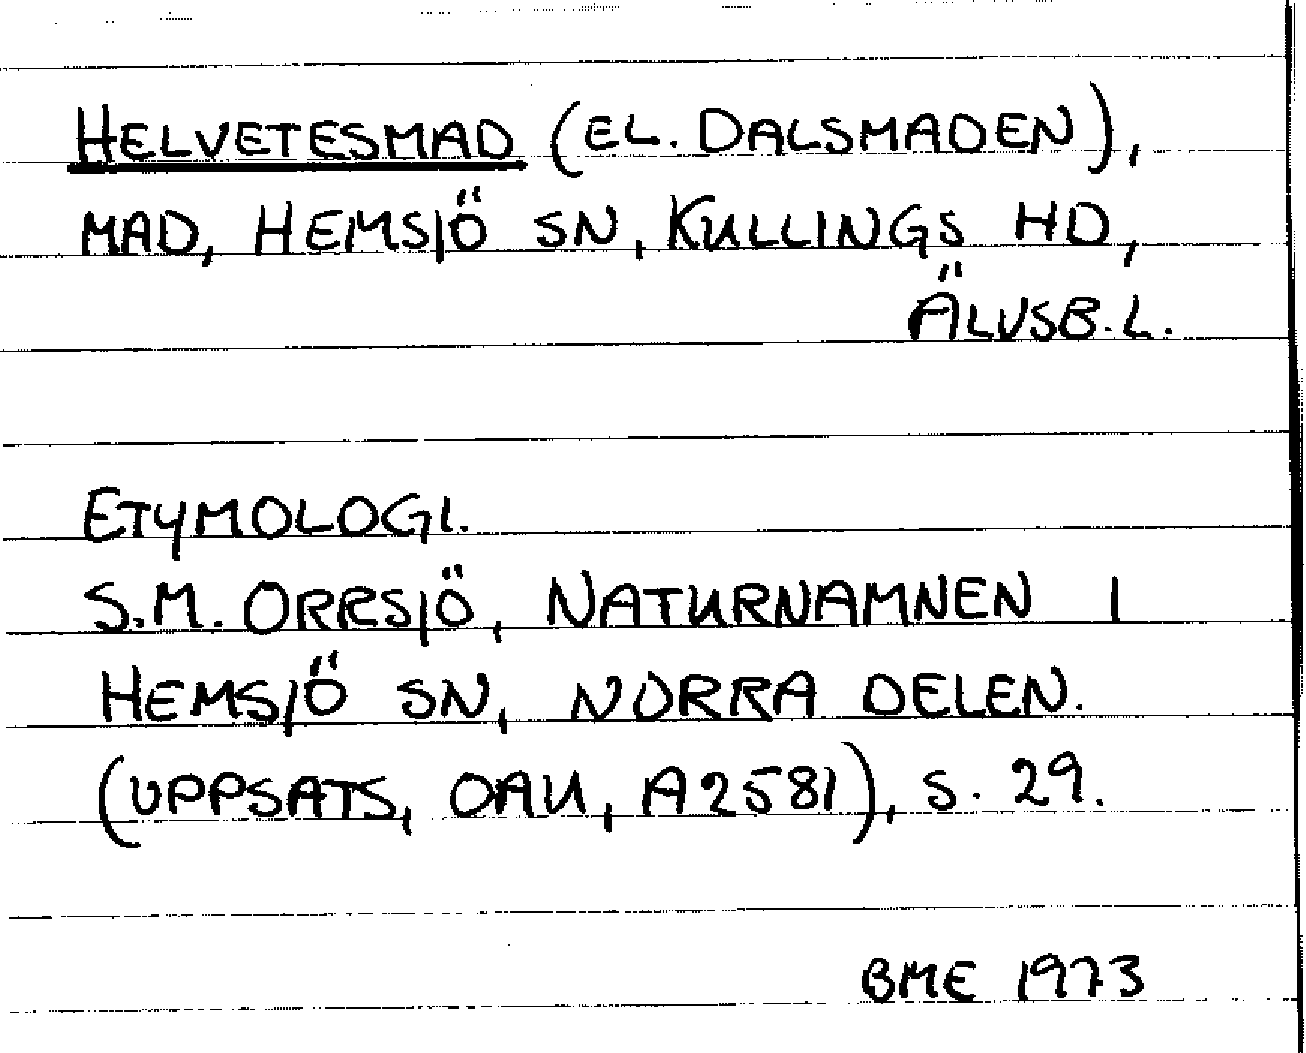 HELVETESMAD (EL. DALSMADEN),
MAD, HEMSJÖ SN, KULLINGS HD,
ÄLVSB. L.
ETYMOLOGI.
S.M. ORRSJÖ, NATURNAMNEN I
HEMSJÖ SN, NORRA DELEN.
(UPPSATS, OAU, A2581), S. 29.
BME 1973